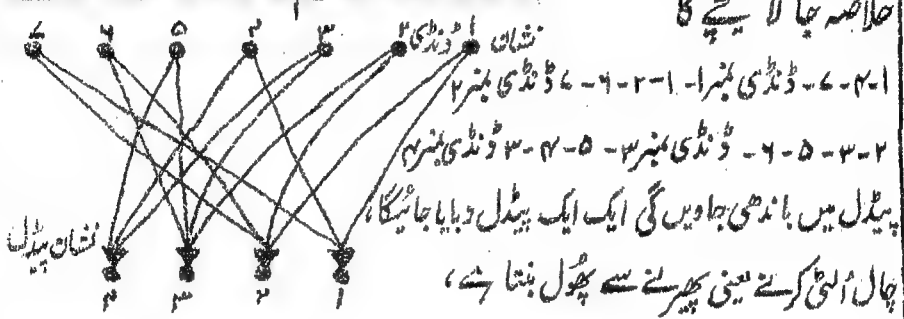 خلاصہ چالا نیچے 8
۷ ۶ ۵ ۴ ۳ ۲ ۱
نشان ڈنڈی
۱-۴-۷- ڈنڈی نمبر۱-۱-۲-۶-۷ ڈنڈی نمبر۲
۲-۳-۵-۶- ڈنڈی نمبر۳-۵-۴-۳ ڈنڈی نمبر۴
پیڈل میں باندھی جاویں گی ایک ایک پیڈل دبایا جائیگا،
نشان پیڈل
چال اُلٹی کرنے یعنی پھرنے سے پھُول بنتا ہے،
۴ ۳ ۲ ۱